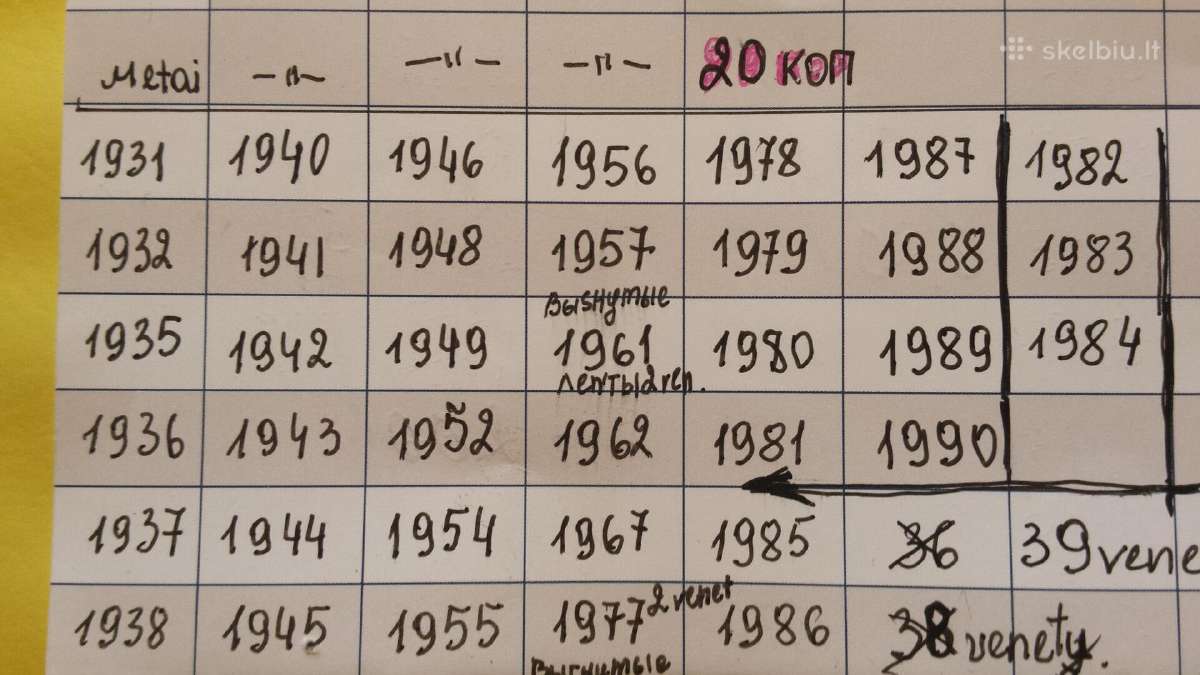 Metai —"— —"— —"— 20 коп
skelbiu.lt
1931 1940 1946 1956 1978 1987 1982
1932 1941 1948 1957 1979 1988 1983
1935 1942 1949 1961 1980 1989 1984
1936 1943 1952 1962 1981 1990
1937 1944 1954 1967 1985 36 39 vene
1938 1945 1955 1977 2 venet 1986 38 venety.